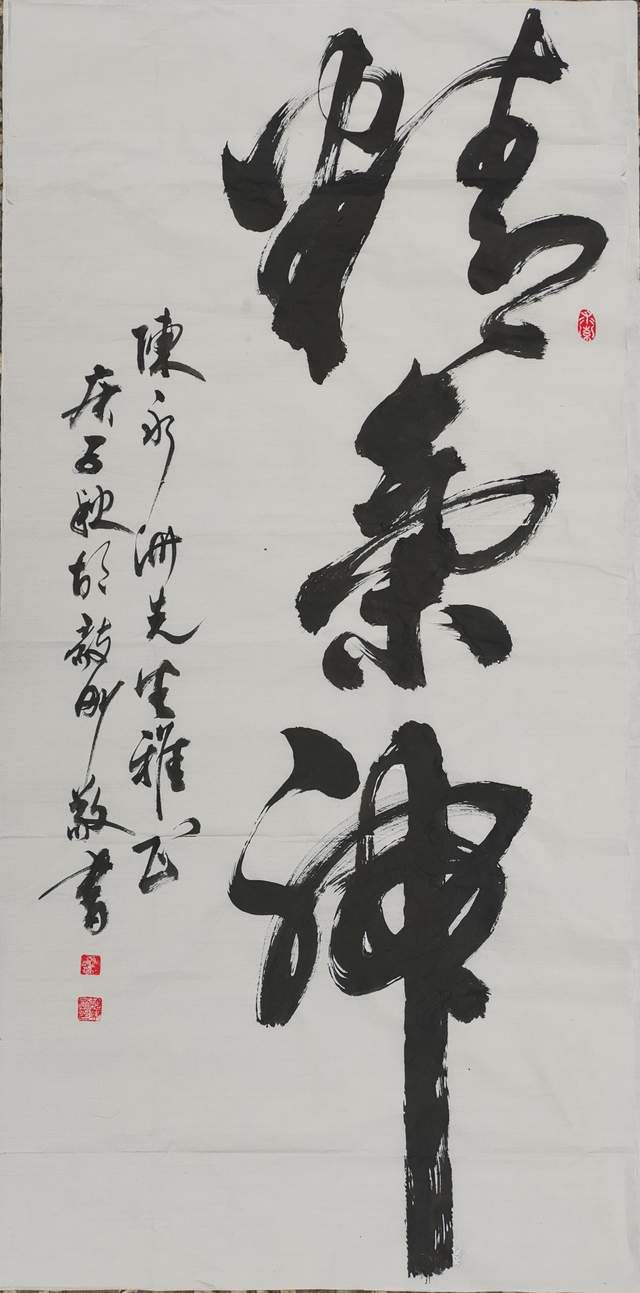 精氣神
陳永洲先生雅正
庚子秋胡毅刚敬書